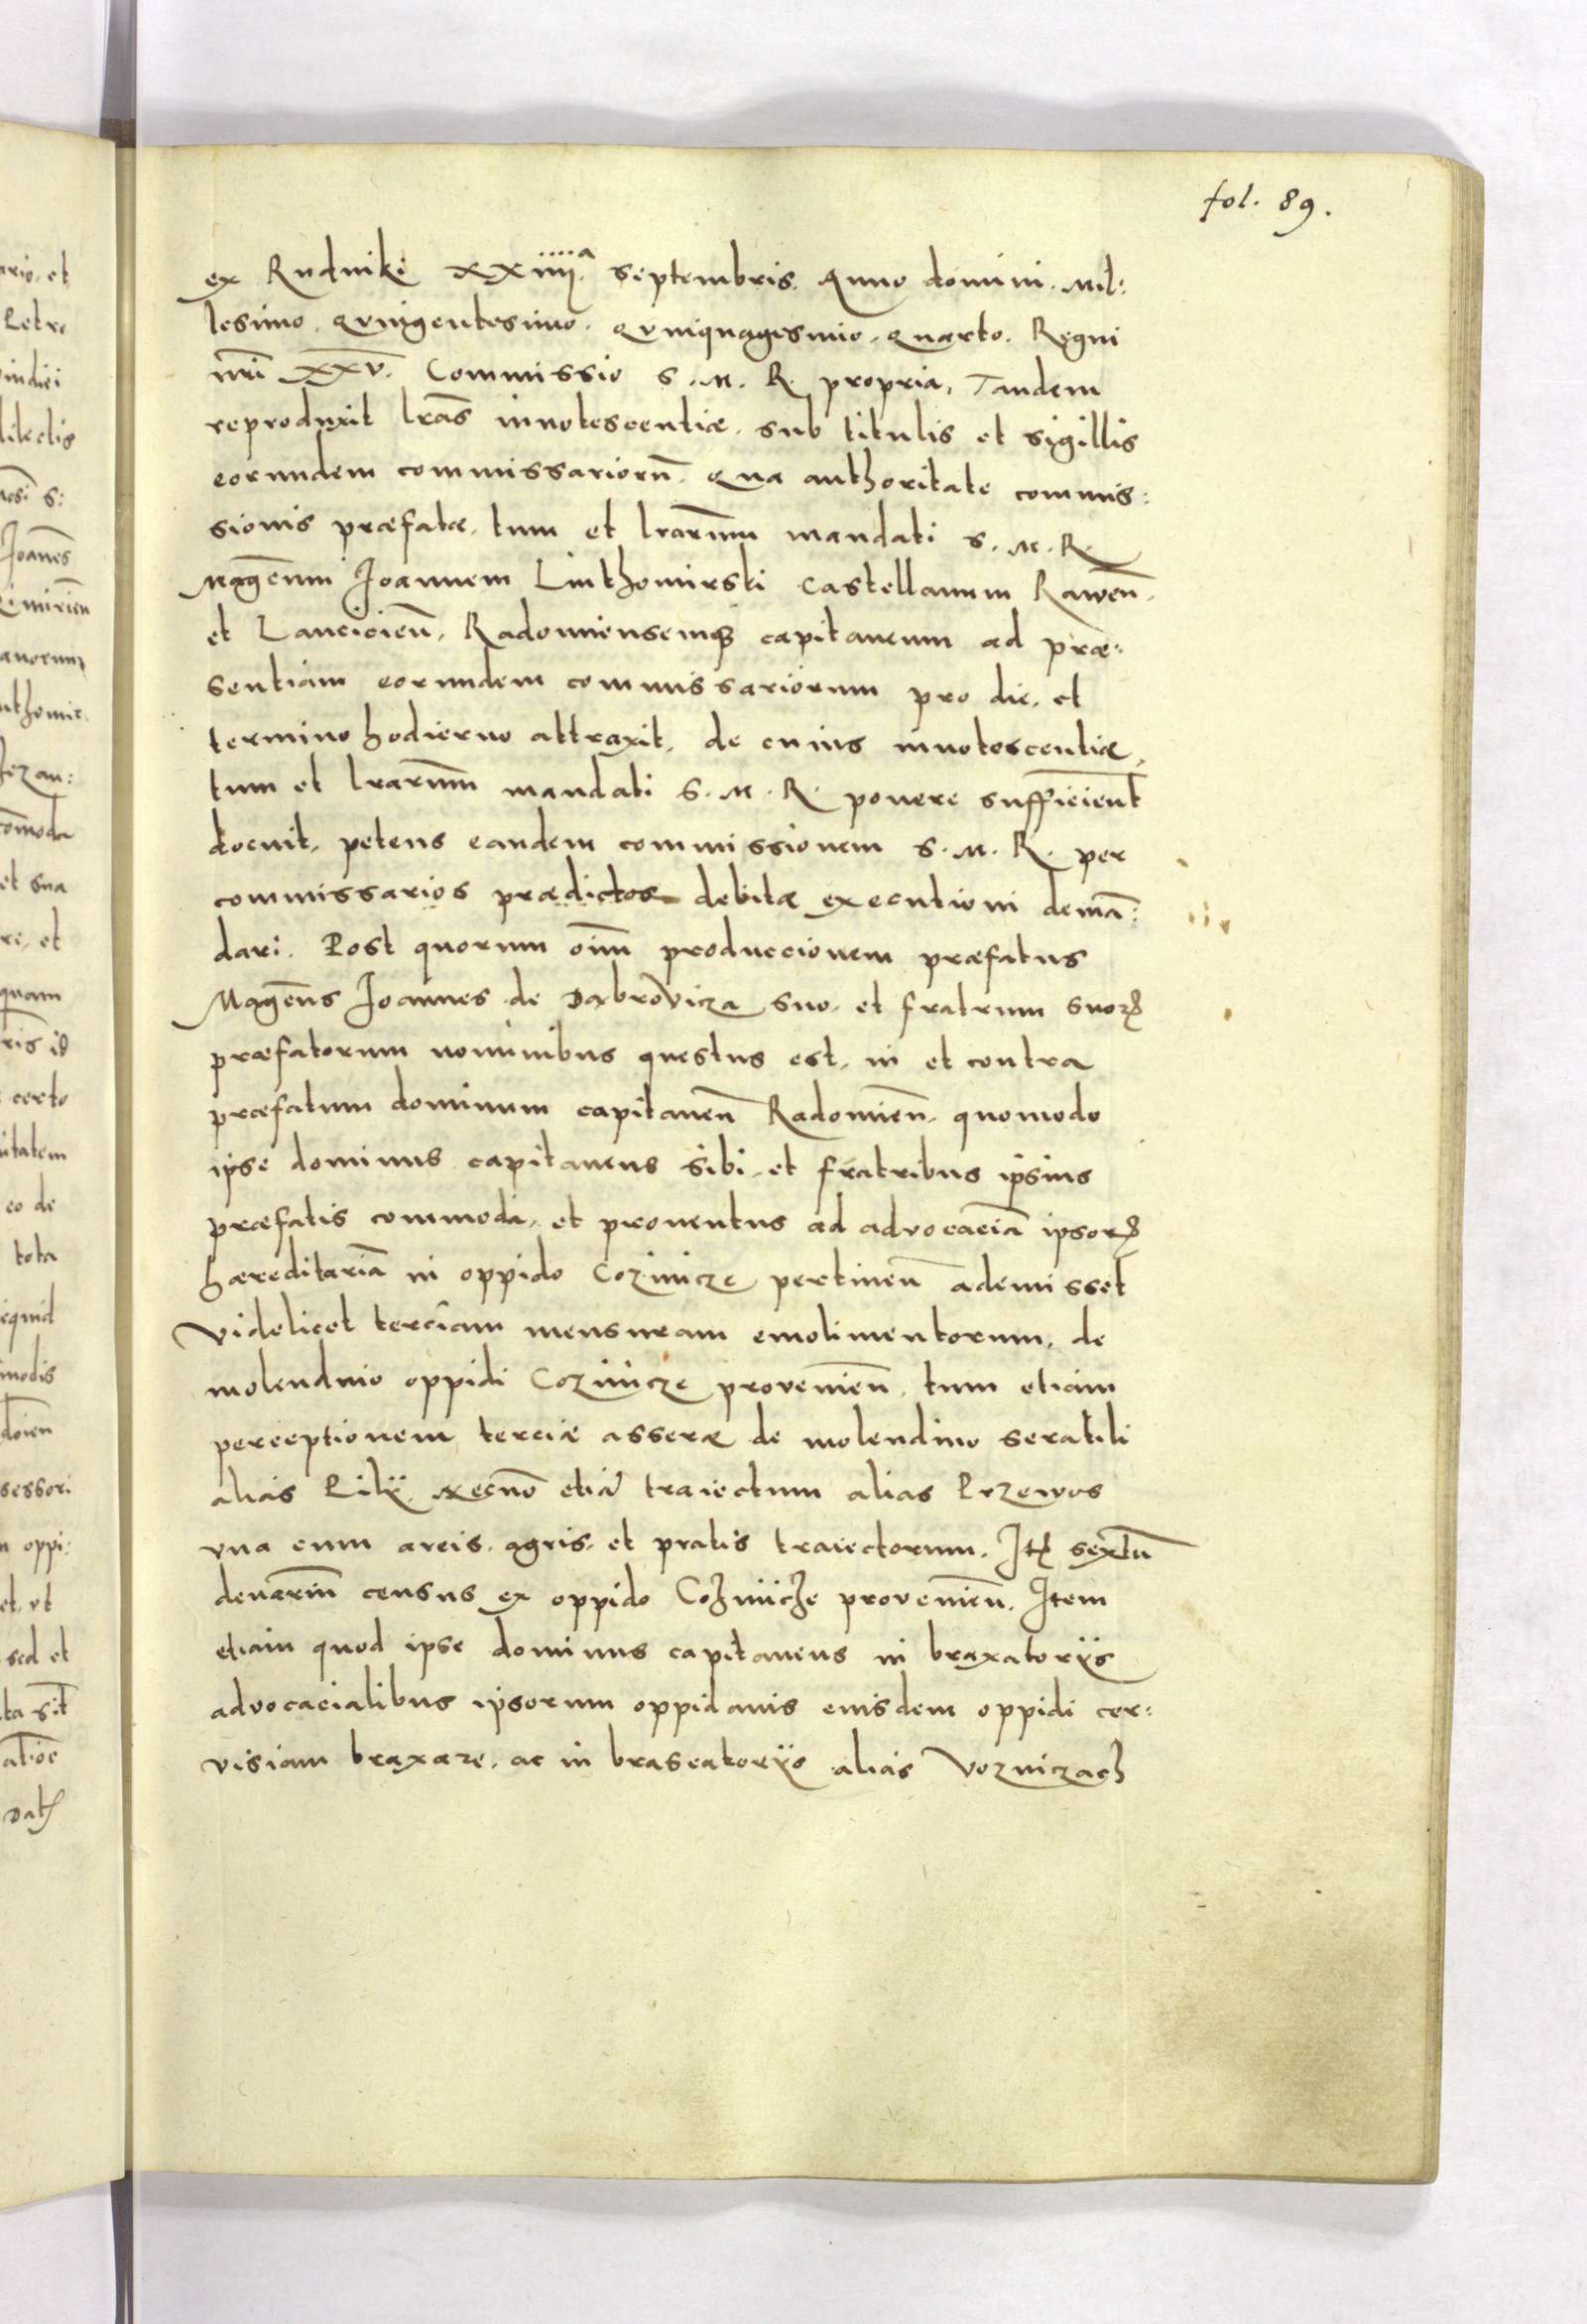 fol. 89.
ex Rudniki XXiiii.ª septembris. Anno domini. Mil:
lesimo. Qvingentesimo. Qvinquagesimo. Quarto. Regni
nr̄i XXV. Commissio S. M. R. propria, Tandem
reproduxit lr̄as innotescentiæ. sub titulis et sigillis
eorundem commissariorū. Qua authoritate commis:
sionis præfatæ. tum et lr̄arum mandati S. M. R.
Magc̄um Joannem Linthomirski Castellanum Rawen̄.
et Lancicien̄. Radomiensemq₃ capitaneum ad præ:
sentiam eorundem commissariorum pro die, et
termino hodierno attraxit. de cuius innotescentiæ,
tum et lr̄arum mandati S. M. R. ponere sufficient̄
docuit. petens eandem commissionem S. M. R. per
commissarios prædictos debitæ executioni demā:
dari. Post quorum oīm produccionem præfatus
Magc̄us Joannes de Dąbrovicza suo. et fratrum suoꝝ
præfatorum nominibus questus est. in et contra
præfatum dominum capitaneū Radomien̄. quomodo
ipse dominus capitaneus sibi. et fratribus ipsius
præfatis commoda. et proventus ad advocaciā ipsoꝝ
hæreditariā in oppido Cozinicze pertinen̄ ademisset
Videlicet terciam mensuram emolimentorum. de
molendino oppidi Cozinicze provenien̄. tum etiam
perceptionem terciæ asseræ de molendino seratili
alias Pily. Necnō etiā traiectum alias Przewos
vna cum areis. agris. et pratis traiectorum. Itꝫ sextū
denarium census ex oppido Cozinicze provenien̄. Item
etiam quod ipse dominus capitaneus in braxatoriis
advocacialibus ipsorum oppidanis eiusdem oppidi cer:
visiam braxare. ac in braseatoriis alias Vozniczach